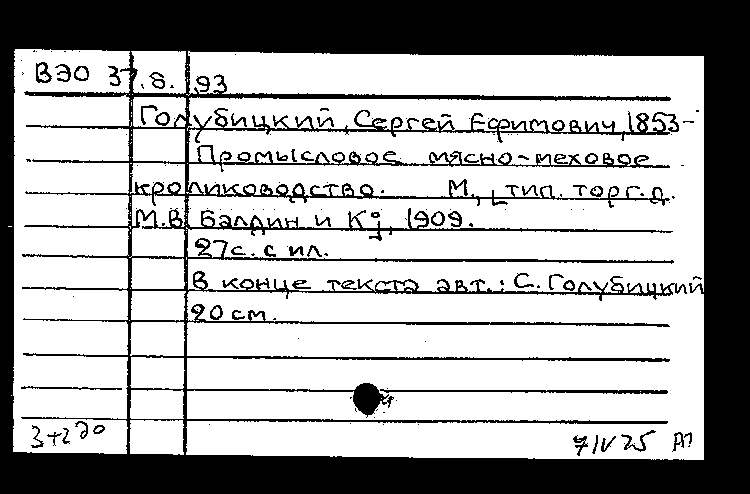 ВЭО 37.8.93
Голубицкий, Сергей Ефимович, 1853-
Промысловое мясно-меховое
кролиководство. М., [тип. торг.д.
М.В. Балдин и К°], 1909.
27с. с ил.
В конце текста авт.: С. Голубицкий
20 см.
й
7/IV 75